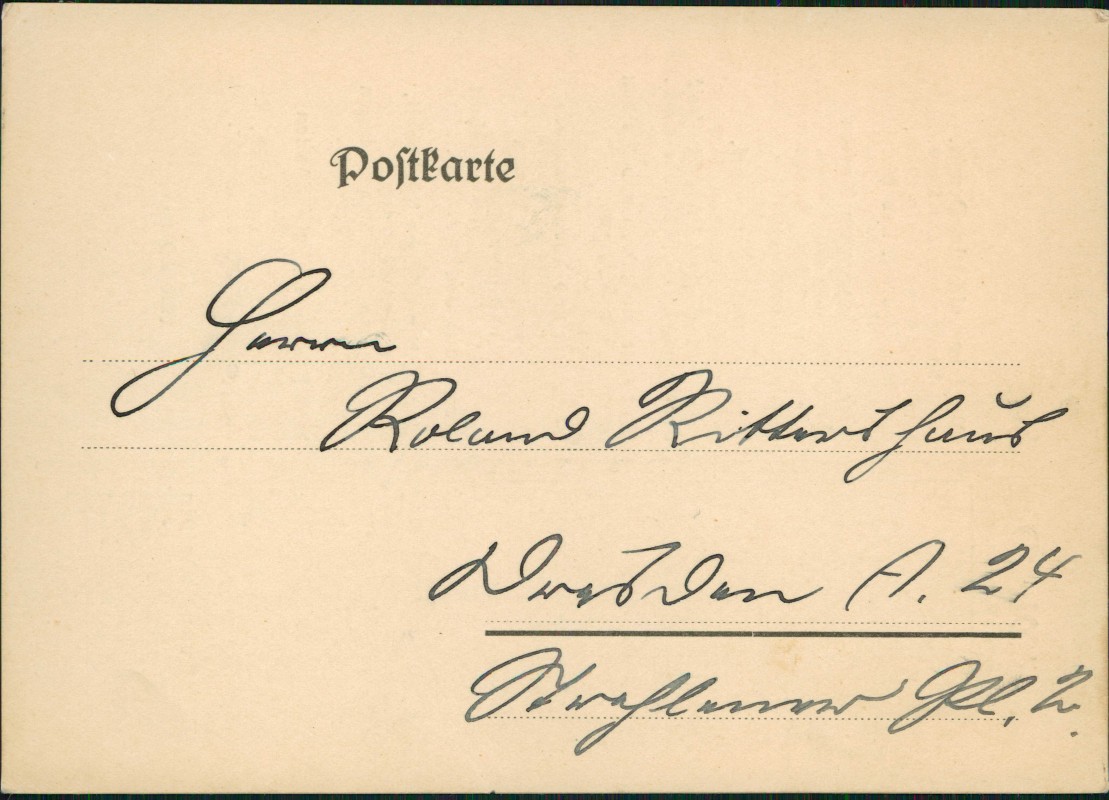 Postkarte
Herrn
Roland Rittershaus
Dresden A. 24
Strehlener Pl. 2.